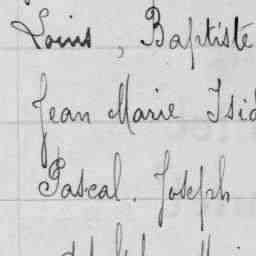 Louis, Baptiste
Jean Marie Isid
Pascal. Joseph